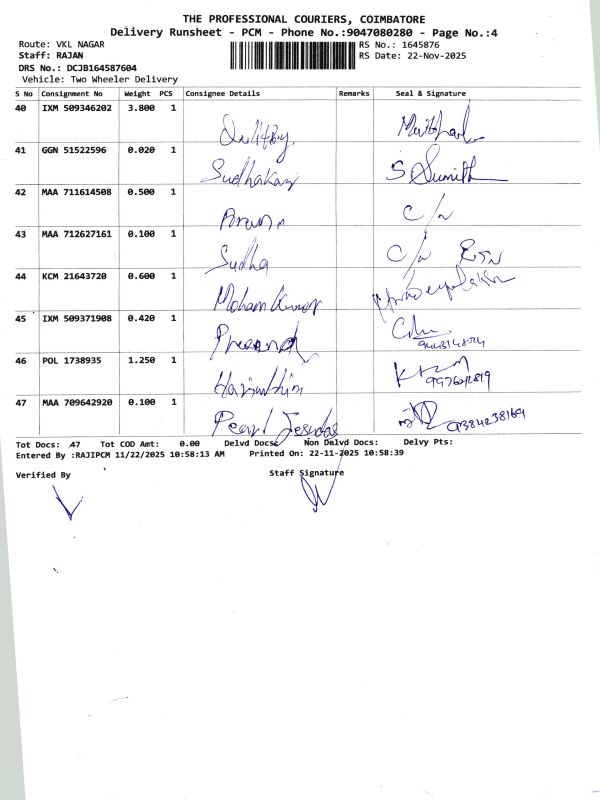 THE PROFESSIONAL COURIERS, COIMBATORE
Delivery Runsheet - PCM - Phone No.:9047080280 - Page No.:4
Route: VKL NAGAR
RS No.: 1645876
Staff: RAJAN
RS Date: 22-Nov-2025
DRS No.: DCJB164587604
Vehicle: Two Wheeler Delivery
S No Consignment No Weight PCS Consignee Details Remarks Seal & Signature
40 IXM 509346202 3.800 1
41 GGN 51522596 0.020 1 Sudhakar S Sumith
42 MAA 711614508 0.500 1 Arun C/n
43 MAA 712627161 0.100 1 Sudha C/n
44 KCM 21643720 0.600 1 Mohan Kumar
45 IXM 509371908 0.420 1
46 POL 1738935 1.250 1
47 MAA 709642920 0.100 1 Pearl Jesudas 9384238169
Tot Docs: 47 Tot COD Amt: 0.00 Delvd Docs: Non Delvd Docs: Delvy Pts:
Entered By :RAJIPCM 11/22/2025 10:58:13 AM Printed On: 22-11-2025 10:58:39
Verified By Staff Signature